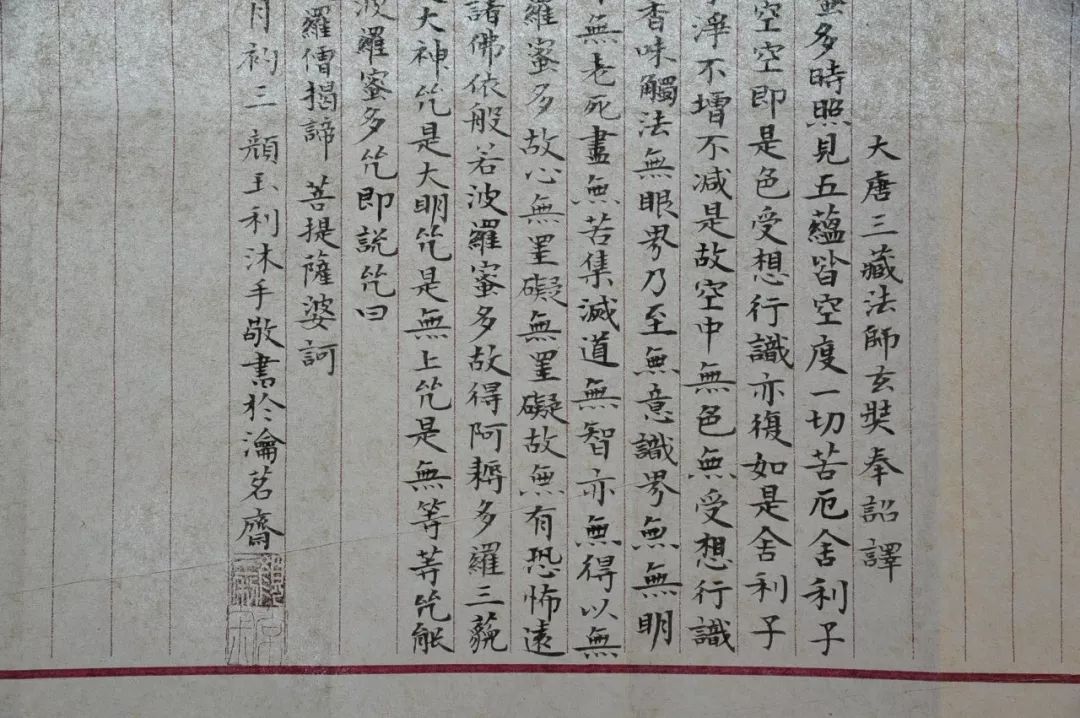 大唐三藏法師玄奘奉詔譯
蜜多時照見五蘊皆空度一切苦厄舍利子
空空即是色受想行識亦復如是舍利子
淨不增不减是故空中無色無受想行識
香味觸法無眼界乃至無意識界無無明
無老死盡無苦集滅道無智亦無得以無
羅蜜多故心無罣礙無罣礙故無有恐怖遠
諸佛依般若波羅蜜多故得阿耨多羅三藐
大神咒是大明咒是無上咒是無等等咒能
波羅蜜多咒即説咒曰
羅僧揭諦 菩提薩婆訶
月初三 顏玉利沐手敬書於瀹茗齋